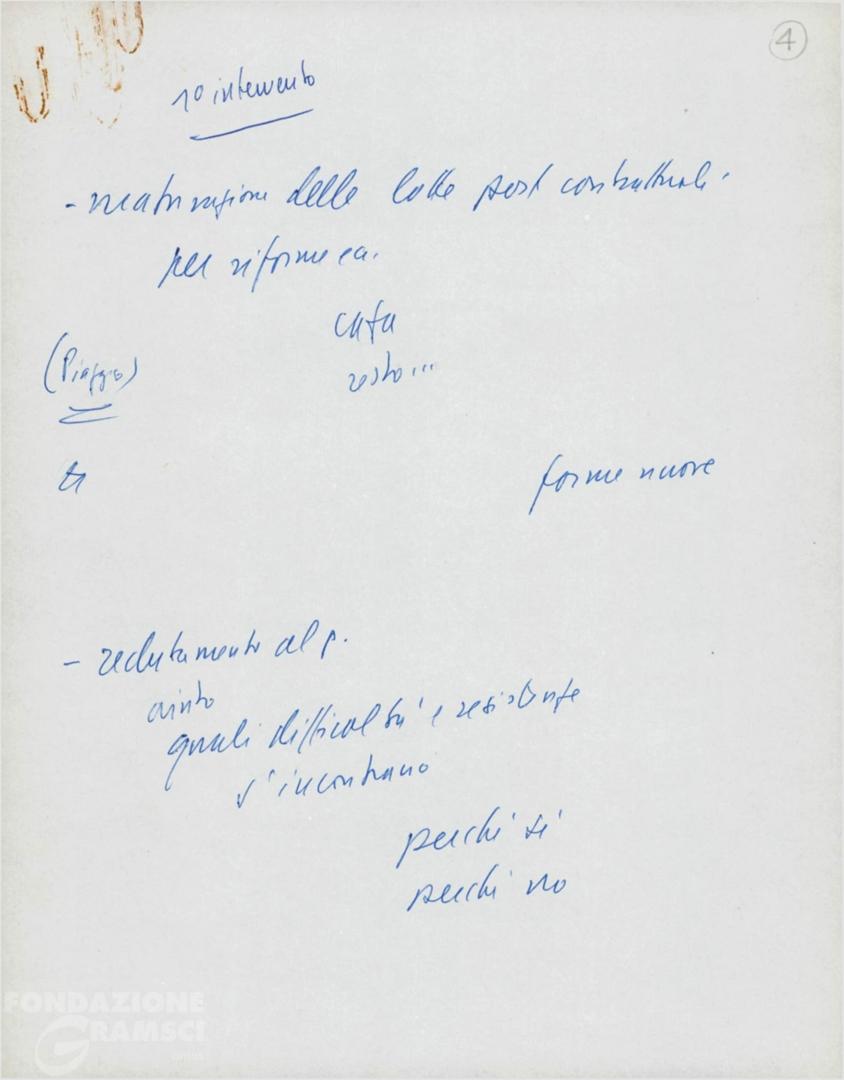 4
1º intervento
- maturazione delle lotte post contrattuali.
per riforme ca.
casa
(Piaggio)
resto...
forme nuove
- reclutamento al p.
aiuto
quali difficoltà e resistenze
s'incontrano
perché sì
perché no
FONDAZIONE
GRAMSCI